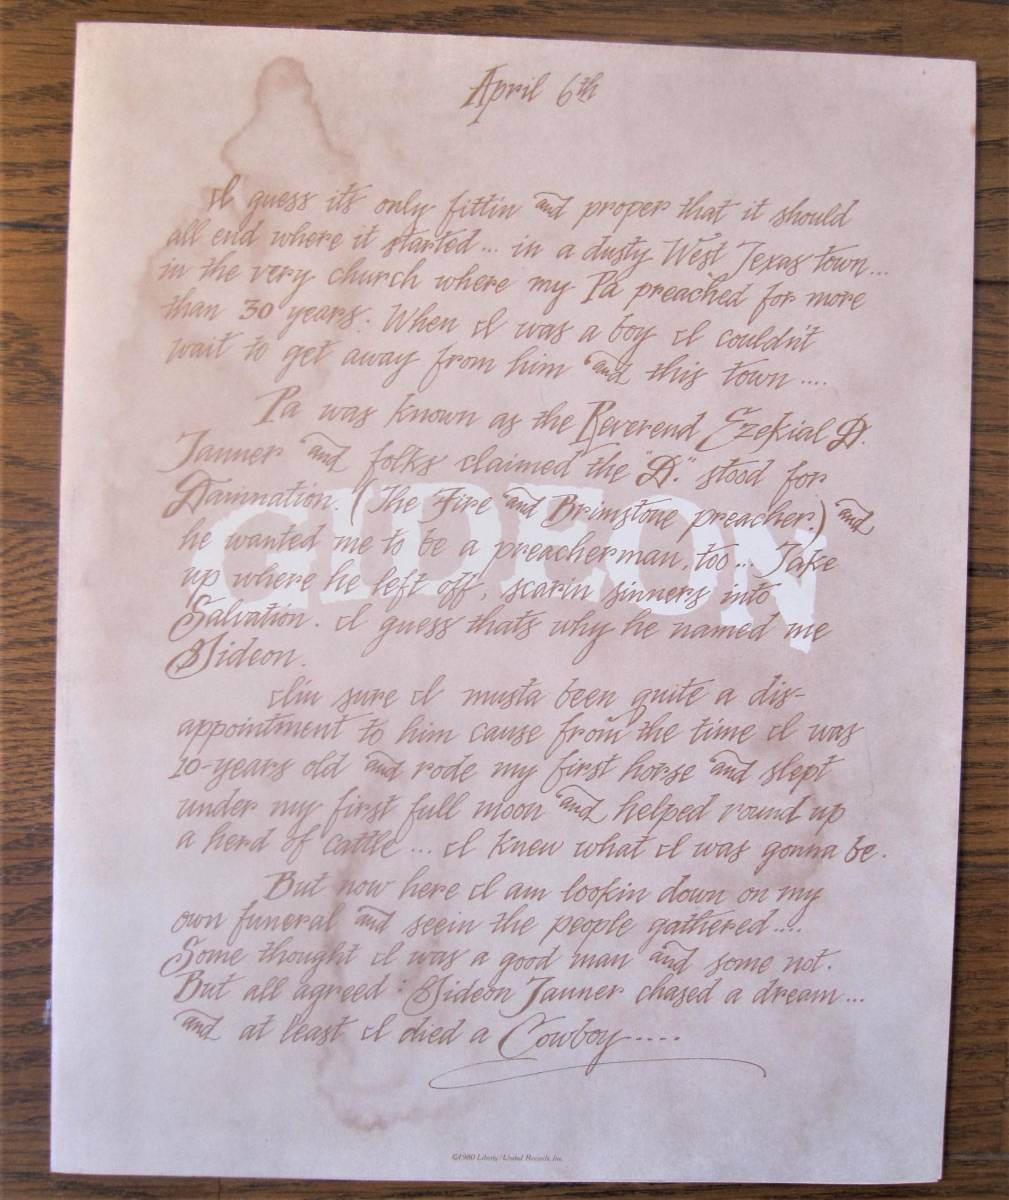 April 6th
I guess its only fittin and proper that it should
all end where it started... in a dusty West Texas town...
in the very church where my Pa preached for more
than 30 years. When I was a boy I couldn't
wait to get away from him and this town....
Pa was known as the Reverend Ezekial D.
Tanner and folks claimed the "D." stood for
Damnation. (The Fire and Brimstone preacher.) and
he wanted me to be a preacherman, too... Take
up where he left off, scarin sinners into
Salvation. I guess thats why he named me
Gideon.
GIDEON
I'm sure I musta been quite a dis-
appointment to him cause from the time I was
10-years old and rode my first horse and slept
under my first full moon and helped round up
a herd of cattle... I knew what I was gonna be.
But now here I am lookin down on my
own funeral and seein the people gathered....
Some thought I was a good man and some not.
But all agreed: Gideon Tanner chased a dream...
and at least I died a Cowboy.....
©1980 Liberty/United Records, Inc.